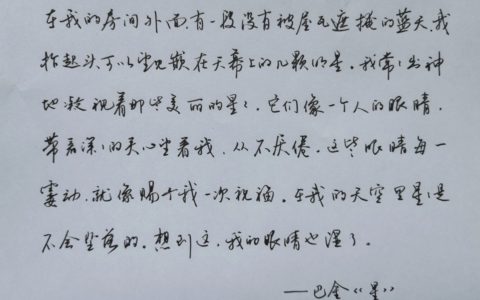 在我的房间外面,有一段没有被屋瓦遮掩的蓝天,我
抬起头可以望见嵌在天幕上的几颗明星。我常常出神
地凝视着那些美丽的星星,它们像一个人的眼睛,
带着深深的关心望着我,从不厌倦。这些眼睛每一
霎动,就像赐予我一次祝福。在我的天空里星星是
不会坠落的。想到这,我的眼睛也湿了。
——巴金《星》